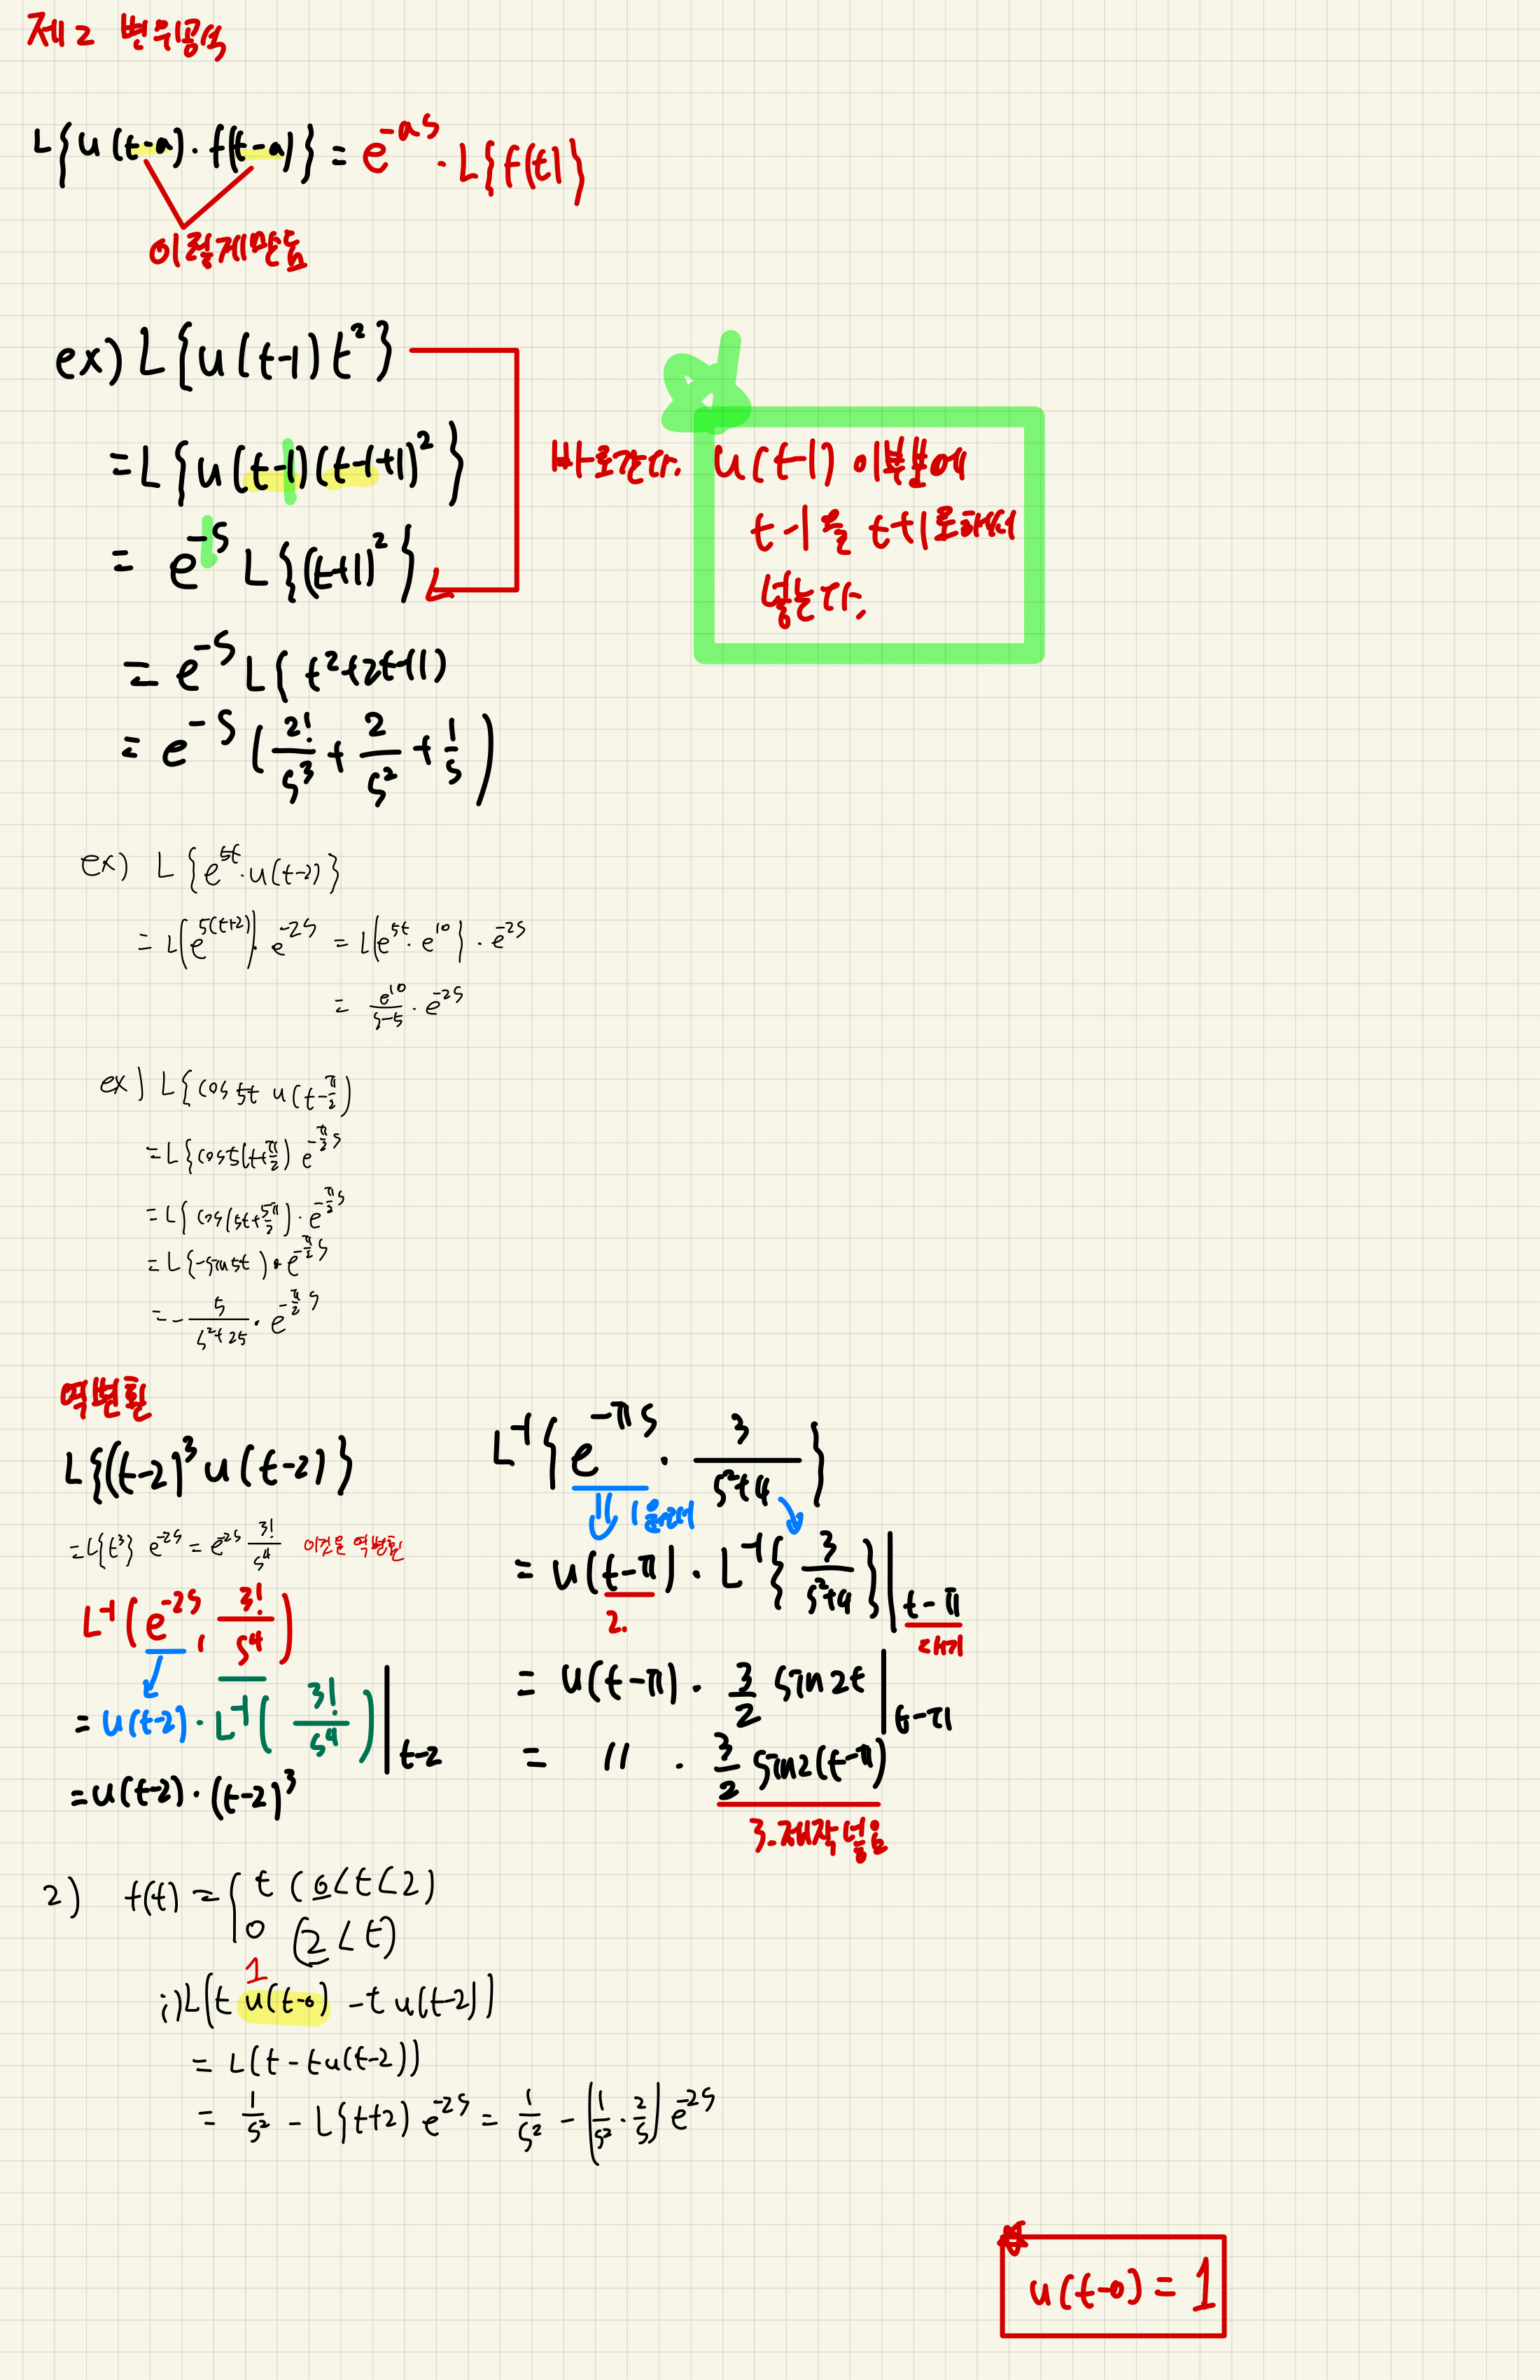 제 2 변위공식
L{u(t-a)·f(t-a)} = e^{-as}·L{f(t)}
이렇게만듬
ex) L{u(t-1)t²}
= L{u(t-1)(t-1+1)²} 바로간다. u(t-1) 이부분에
t-1을 t+1로해서
= e^{-s} L{(t+1)²}
넣는다.
= e^{-s} L{t²+2t+1)
= e^{-s} (2!/s³ + 2/s² + 1/s)
ex) L{e^{5t}·u(t-2)}
= L(e^{5(t+2)})·e^{-2s} = L{e^{5t}·e^{10}}·e^{-2s}
= e^{10}/(s-5) · e^{-2s}
ex) L{cos5t u(t-π/2)
= L{cos5(t+π/2) e^{-π/2 s}
= L{cos(5t+5π/2)·e^{-π/2 s}
= L{-sin5t)·e^{-π/2 s}
= -5/(s²+25) · e^{-π/2 s}
역변환
L{(t-2)³u(t-2)}
= L{t³} e^{-2s} = e^{-2s} 3!/s⁴ 이것을 역변환
L⁻¹(e^{-2s}, 3!/s⁴)
= u(t-2)·L⁻¹(3!/s⁴)|t-2
= u(t-2)·(t-2)³
L⁻¹{e^{-πs}·3/(s²+4)}
= u(t-π)·L⁻¹{3/(s²+4)}|t-π
2.
대기
= u(t-π)·3/2 sin2t|t-π
= 〃 · 3/2 sin2(t-π)
3.
2) f(t) = { t (0<t<2)
0 (2<t)
1
i) L(t u(t-0) - t u(t-2))
= L(t - tu(t-2))
= 1/s² - L{t+2) e^{-2s} = 1/s² - (1/s² · 2/s) e^{-2s}
u(t-0) = 1